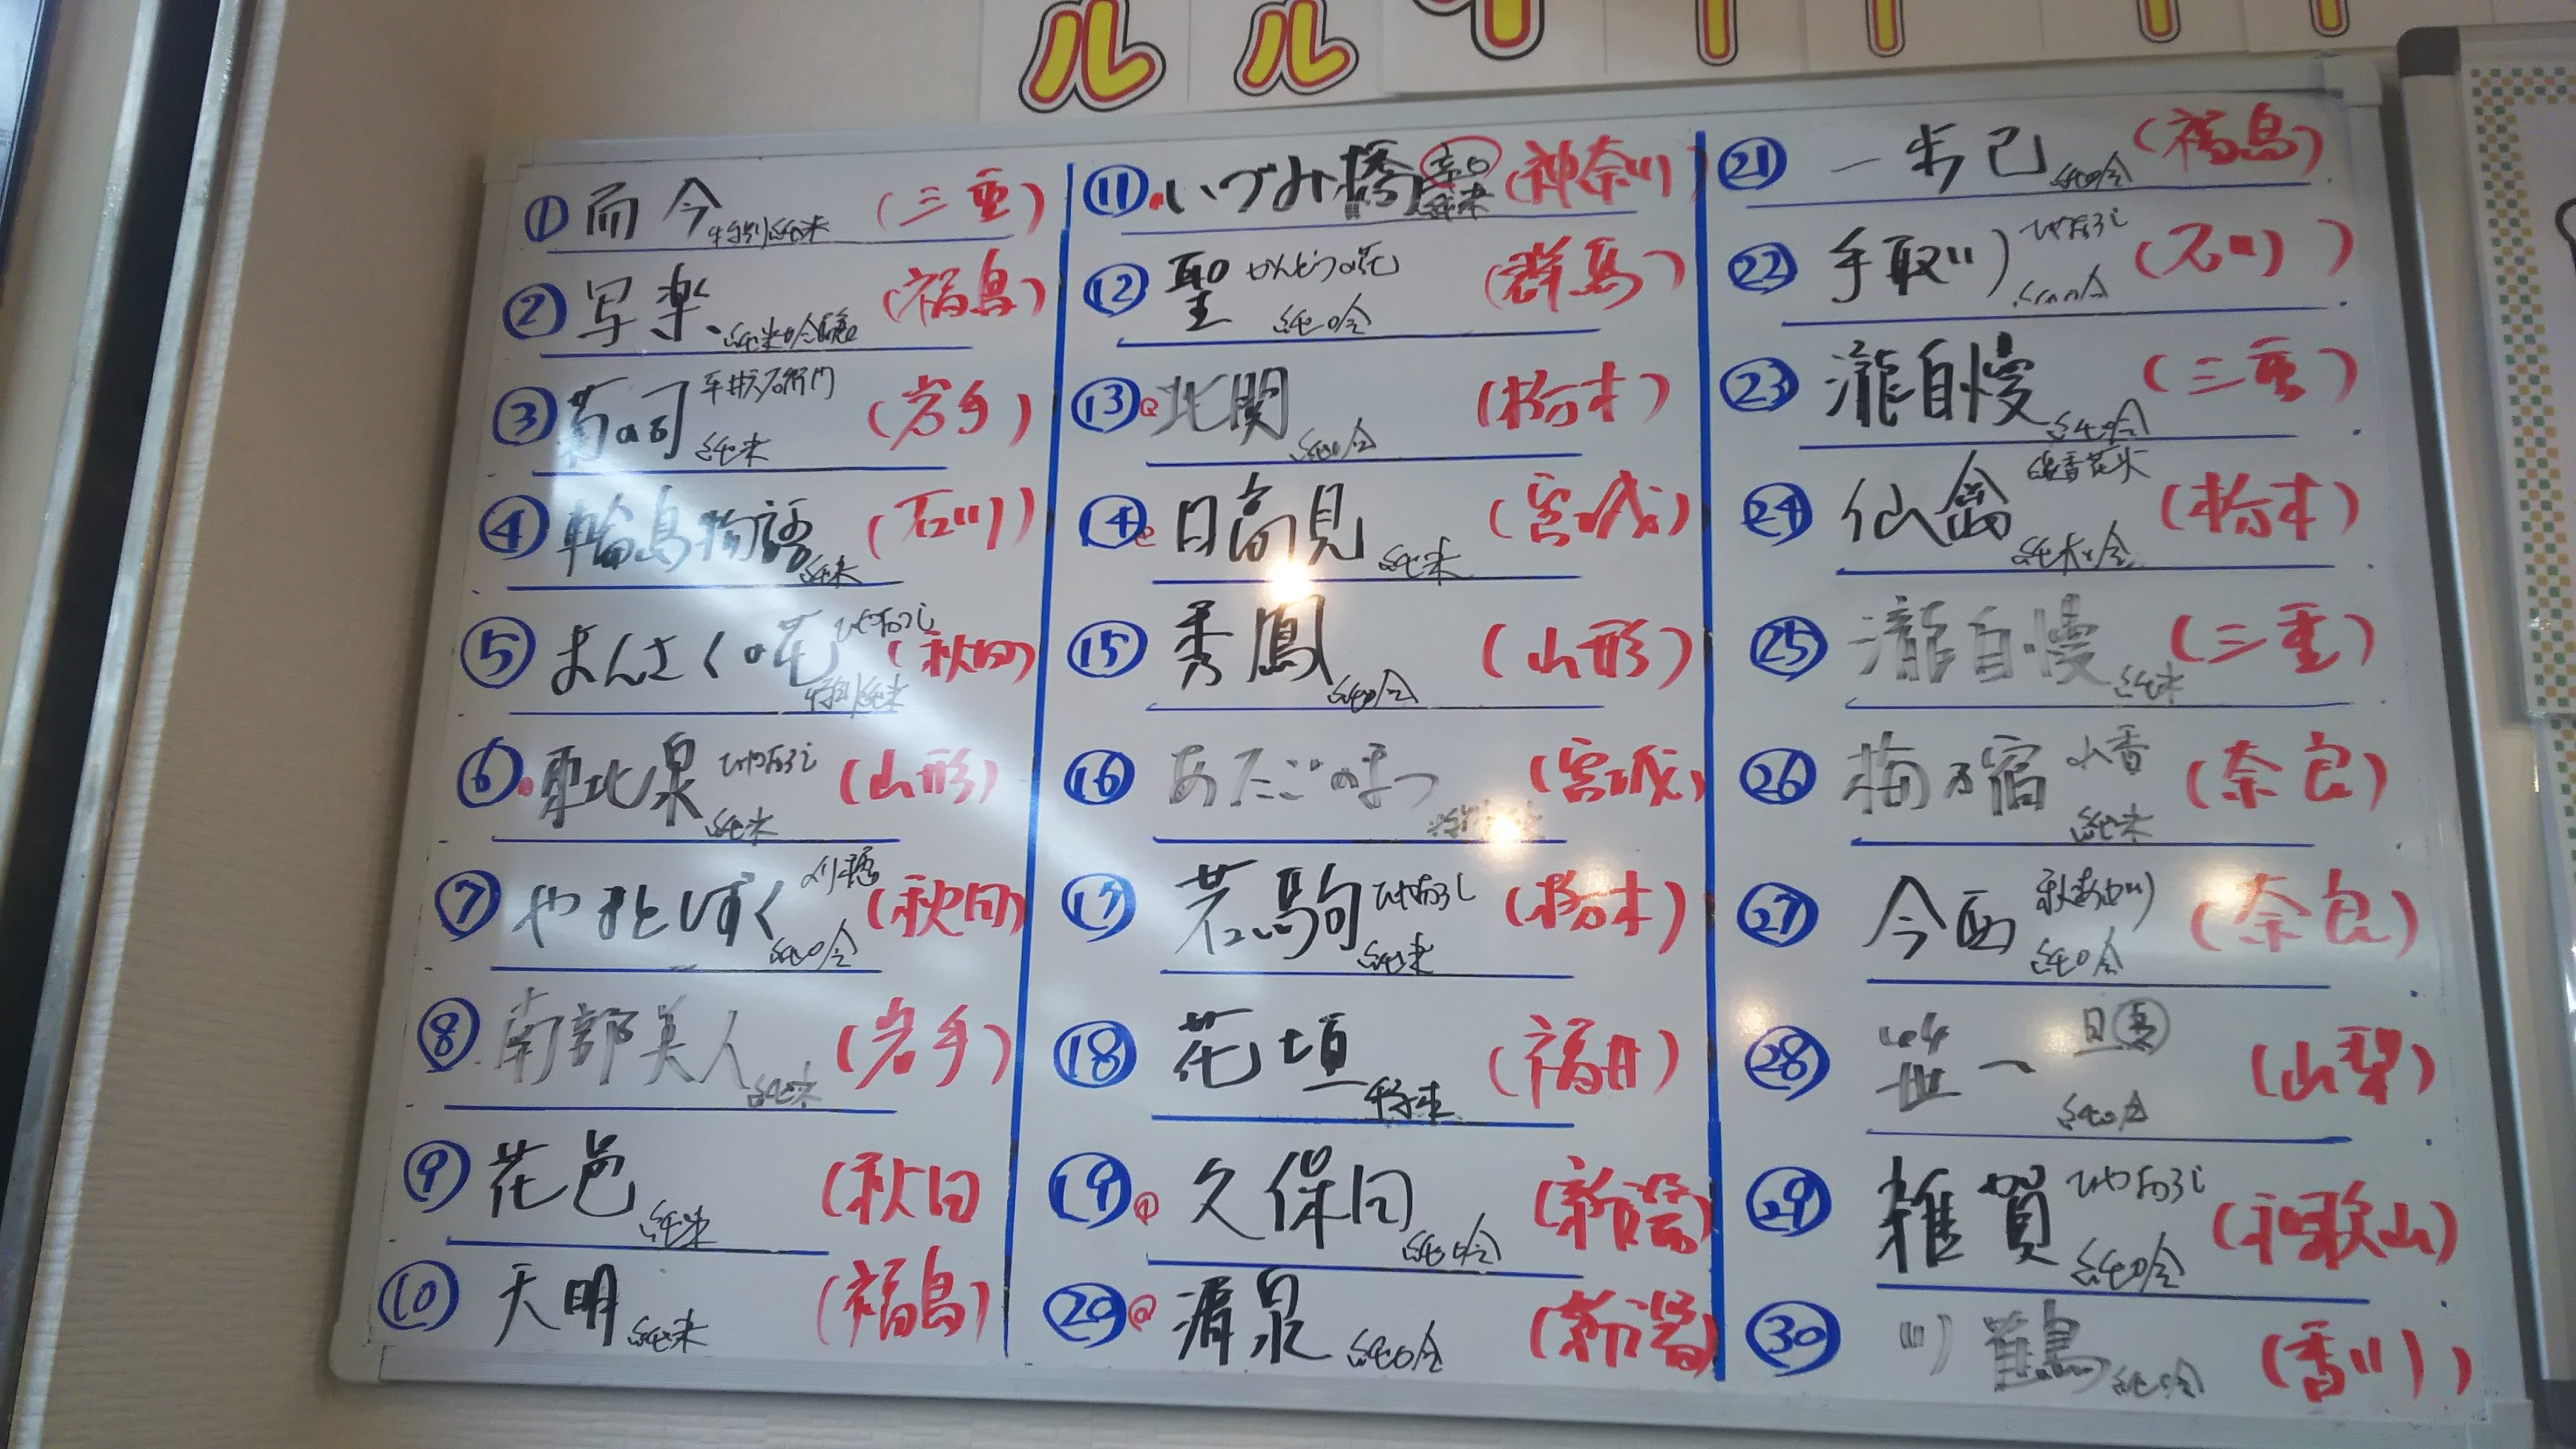 ルル
① 而今 特別純米 (三重)
② 写楽 純米吟醸 (福島)
③ 菊の司 平井六右衛門 純米 (岩手)
④ 輪島物語 純米 (石川)
⑤ まんさくの花 ひやおろし 特別純米 (秋田)
⑥ 東北泉 ひやおろし 純米 (山形)
⑦ やまとしずく 純吟 (秋田)
⑧ 南部美人 純米 (岩手)
⑨ 花邑 純米 (秋田
⑩ 天明 純米 (福島)
⑪ いづみ橋 辛口 純米 (神奈川)
⑫ 聖 純吟 (群馬)
⑬ 北関 純吟 (栃木)
⑭ 日高見 純米 (宮城)
⑮ 秀鳳 純吟 (山形)
⑯ あたごのまつ (宮城)
⑰ 若駒 ひやおろし 純米 (栃木)
⑱ 花垣 特純 (福井)
⑲ 久保田 純吟 (新潟)
⑳ 清泉 純吟 (新潟)
㉑ 一歩己 純吟 (福島)
㉒ 手取川 ひやおろし 純吟 (石川)
㉓ 瀧自慢 純吟 (三重)
㉔ 仙禽 線香花火 (栃木)
㉕ 瀧自慢 純米 (三重)
㉖ 梅乃宿 山香 純米 (奈良)
㉗ 今西 秋あがり 純吟 (奈良)
㉘ 笹一 純吟 (山梨)
㉙ 雑賀 ひやおろし 純吟 (和歌山)
㉚ 川鶴 純吟 (香川)